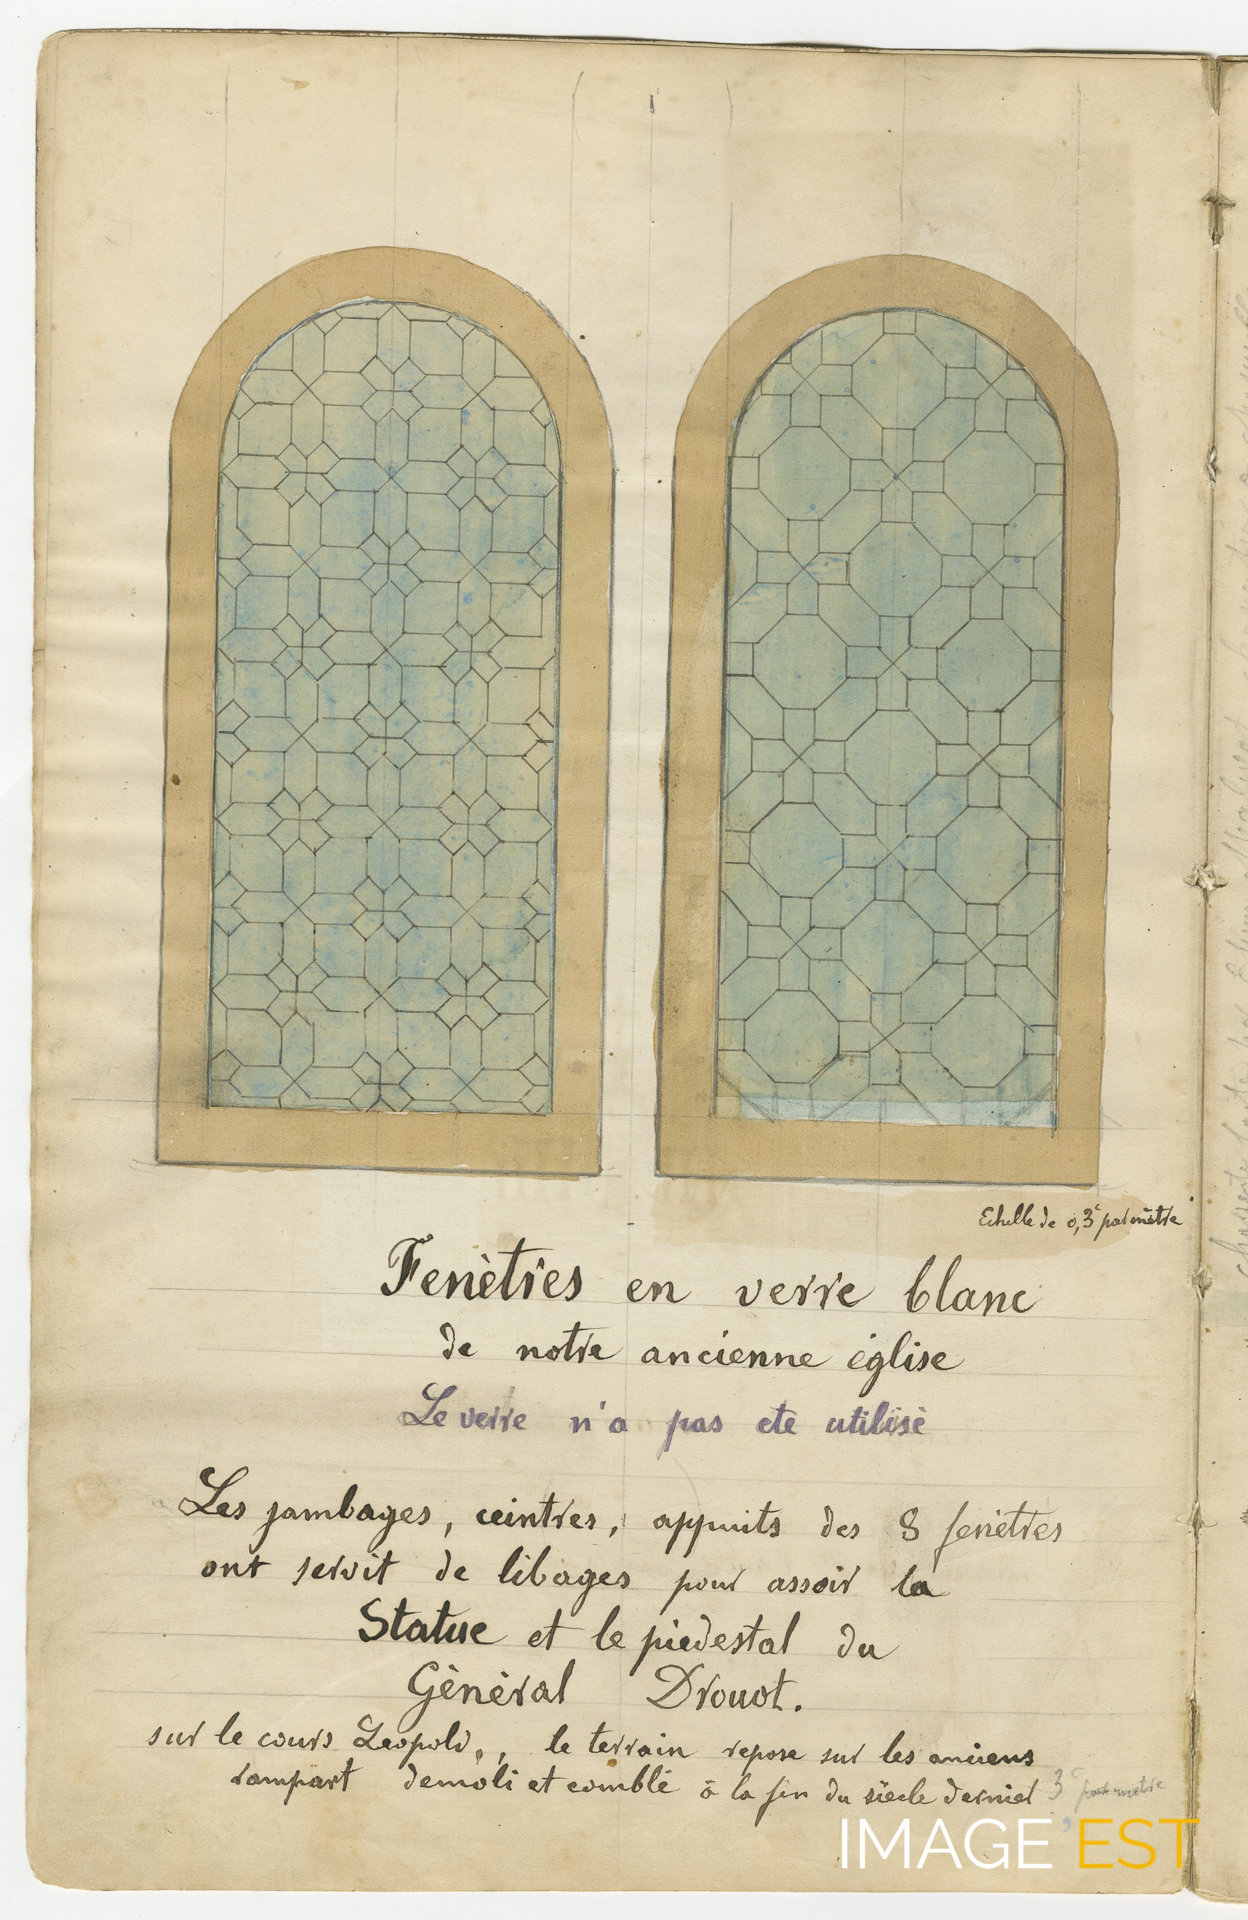 Echelle de 0,3c par mètre
Fenètres en verre blanc
de notre ancienne église
Le verre n'a pas eté utilisé
Les jambages, ceintres, appuits des 8 fenètres
ont servit de libages pour assoir la
Statue et le piedestal du
Gènèral Drouot.
sur le cours Leopold, le terrain repose sur les anciens
rampart demoli et comblé à la fin du siècle dernier 3c par metre
IMAGE'EST